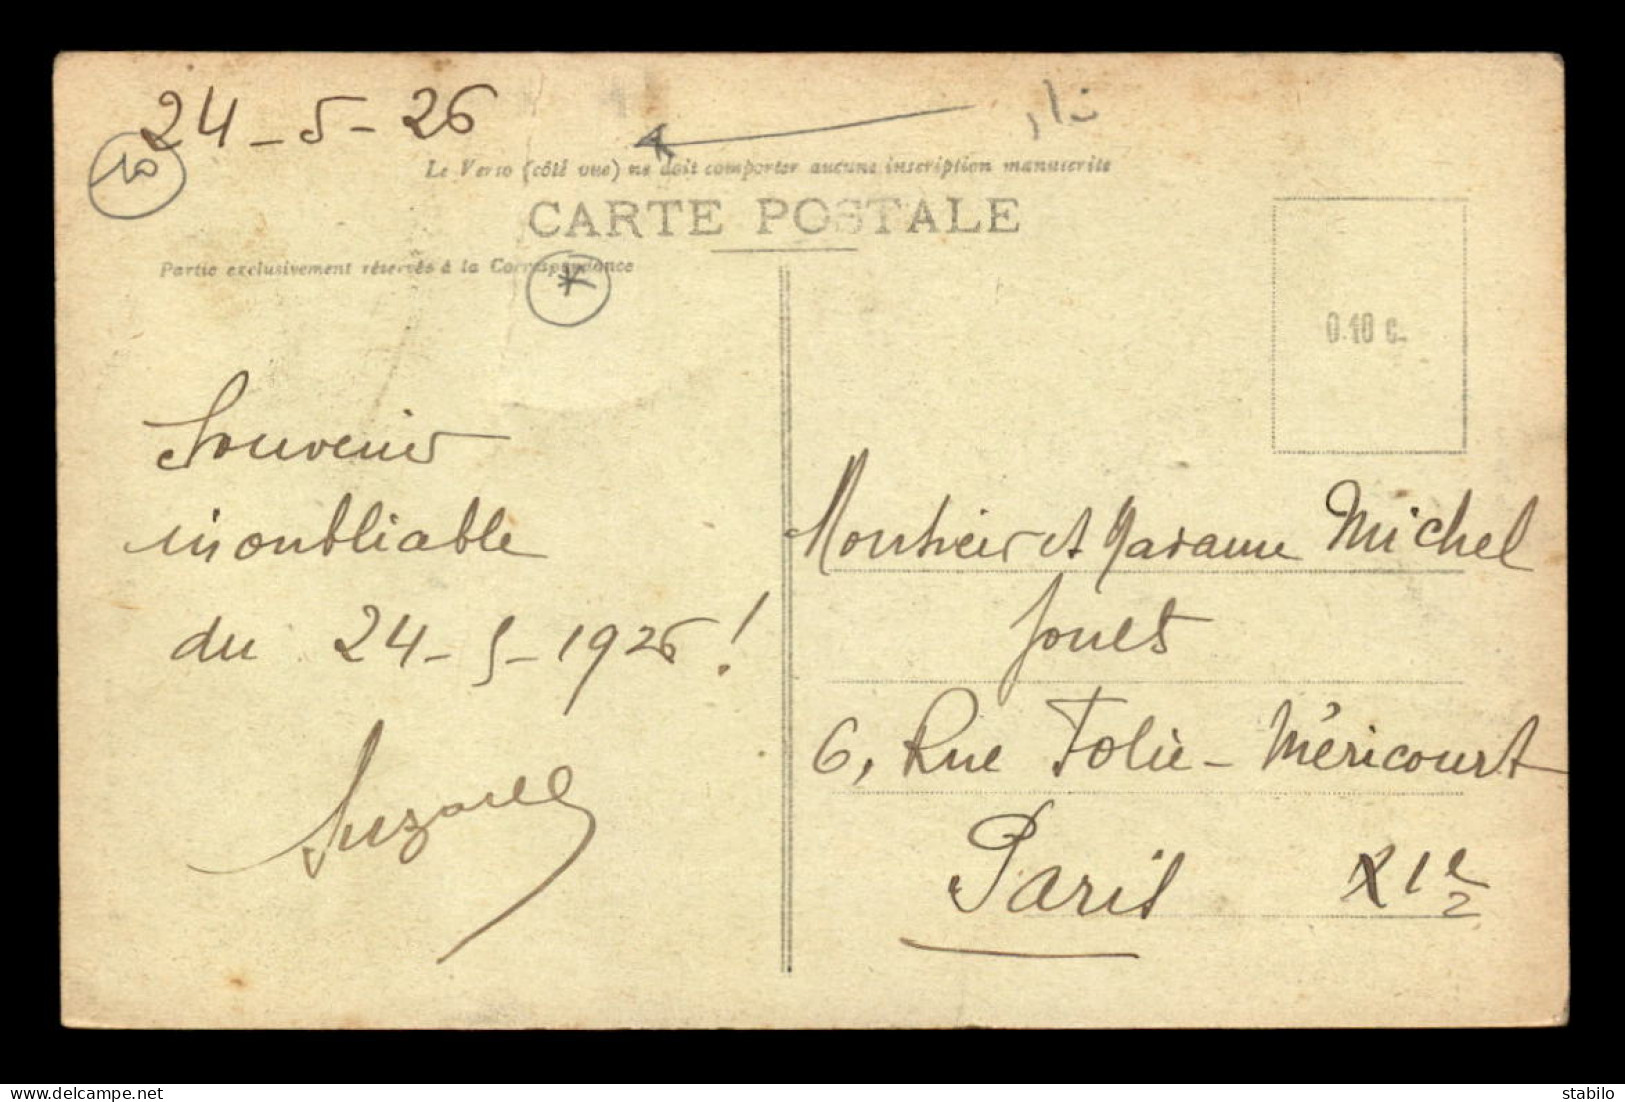 24-5-26
10
Le Verso (côté vue) ne doit comporter aucune inscription manuscrite
CARTE POSTALE
Partie exclusivement réservée à la Correspondance
0.10 c.
Souvenir
inoubliable
du 24-5-1926!
Suzanne
Monsieur et Madame Michel
Jouets
6, Rue Folie-Méricourt
Paris XIe
stabilo